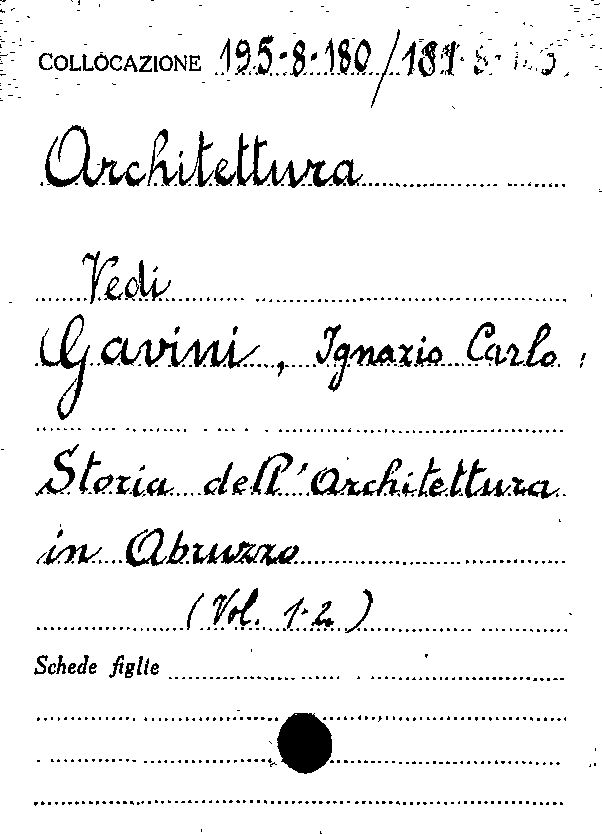 COLLOCAZIONE 195-8-180/181
Architettura
Vedi
Gavini, Ignazio Carlo,
Storia dell'Architettura
in Abruzzo
(Vol. 1-2)
Schede figlie